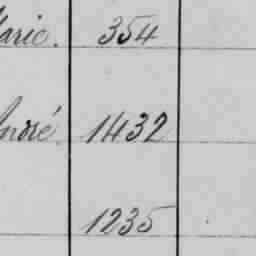 Marie. 354
André. 1432
1235